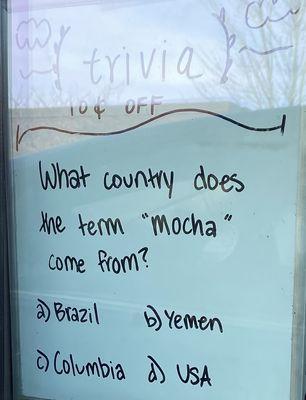 trivia
10¢ OFF
What country does
the term "Mocha"
come from?
a) Brazil b) Yemen
c) Columbia d) USA